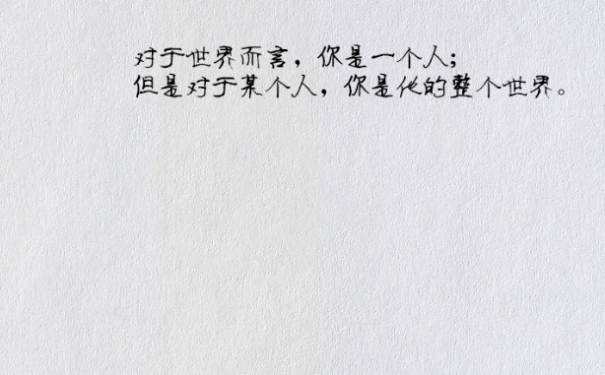 对于世界而言，你是一个人；
但是对于某个人，你是他的整个世界。